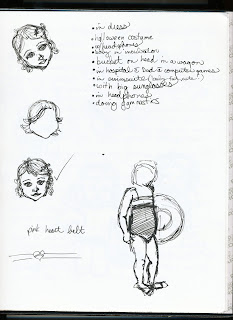 • in dress
• halloween costume
• w/headphones
• baby in
• bucket on head in a wagon
• in hospital & Dad & computer games
• in swimsuite
• with big sunglasses
• in headphones
• doing gymnastics
pink heart belt